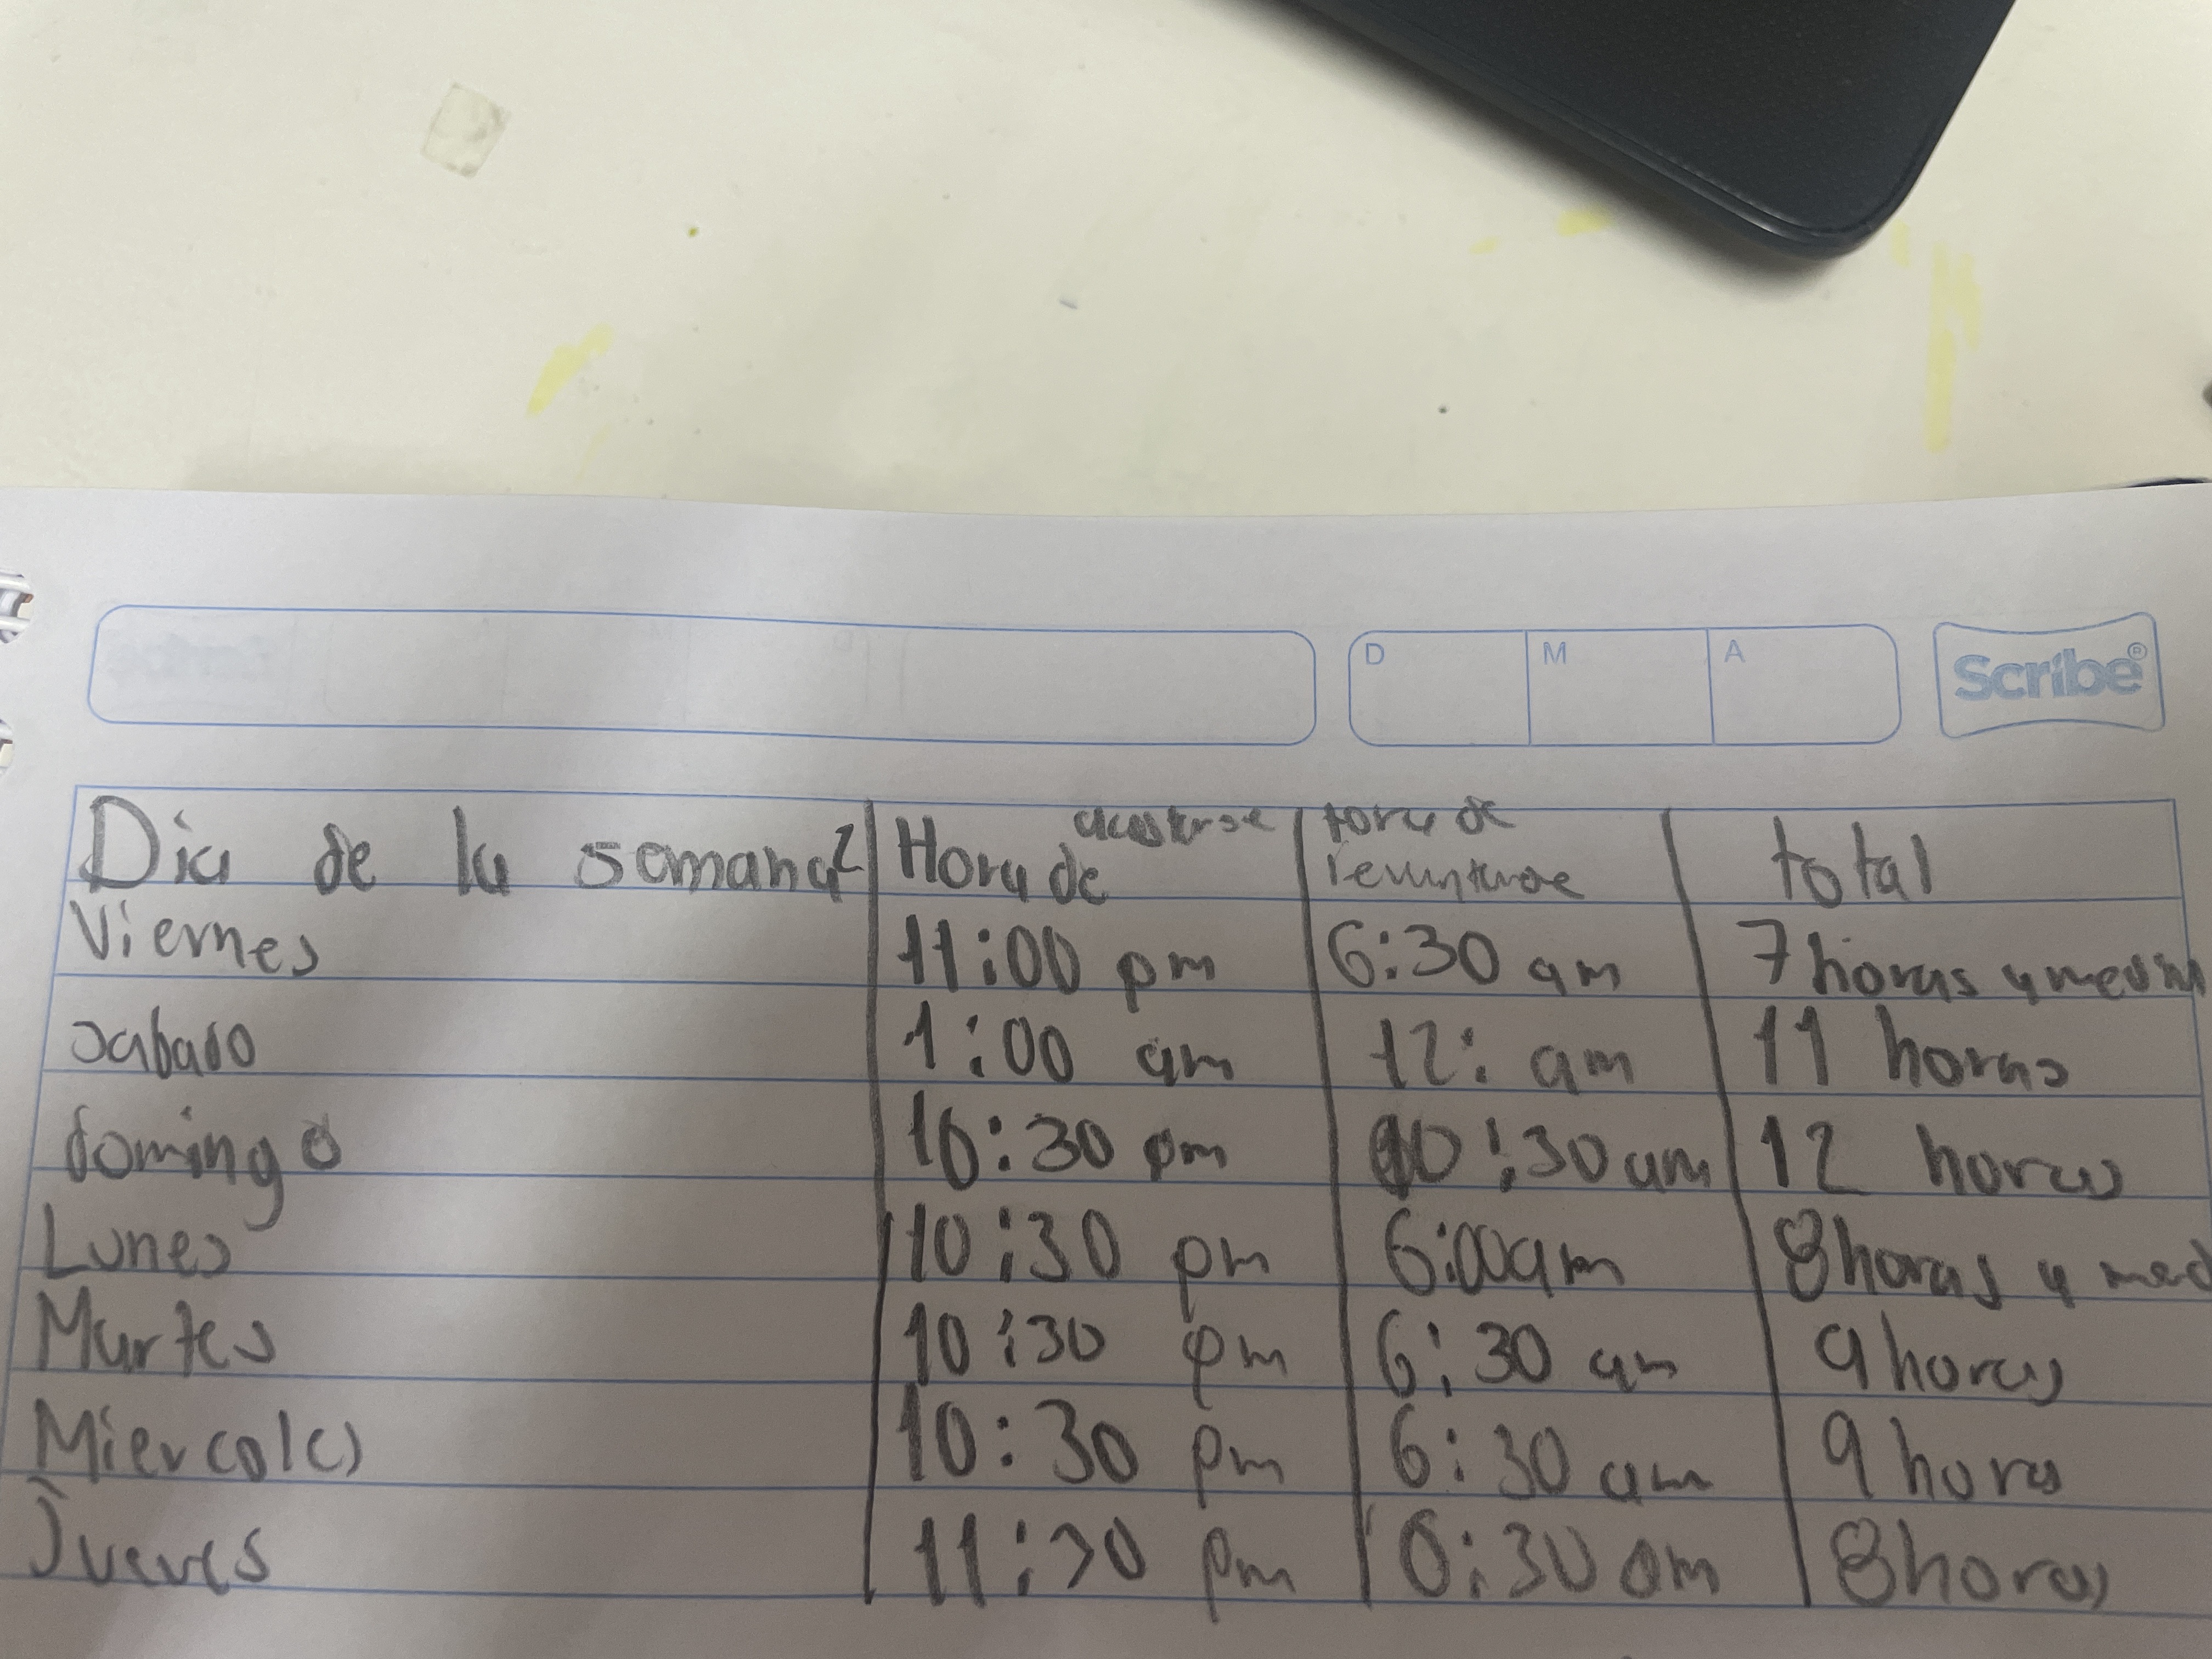 D M A Scribe®
Dia de la semana Hora de acostarse hora de levantarse total
Viernes 11:00 pm 6:30 am 7 horas y media
sabado 1:00 am 12: am 11 horas
domingo 10:30 pm 10:30 am 12 horas
Lunes 10:30 pm 6:00 am 8 horas y med
Martes 10:30 pm 6:30 am 9 horas
Miercoles 10:30 pm 6:30 am 9 horas
Jueves 11:30 pm 6:30 am 8 horas